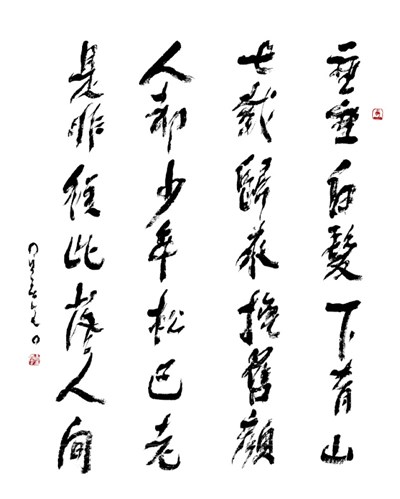 垂垂白髮下青山
七歲歸來換舊顏
人卻少年松已老
是非從此落人間